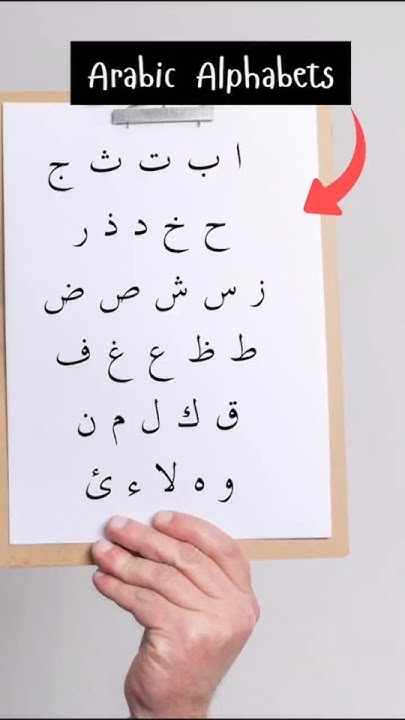 Arabic Alphabets
ا ب ت ث ج
ح خ د ذ ر
ز س ش ص ض
ط ظ ع غ ف
ق ك ل م ن
و ه لا ء ئ